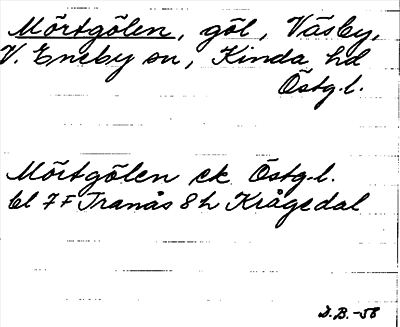 Mörtgölen, göl, Väsby,
V. Eneby sn, Kinda hd
Östg.l.
Mörtgölen ek Östg.l.
bl 7F Tranås 8h Krågedal
D.B.-58